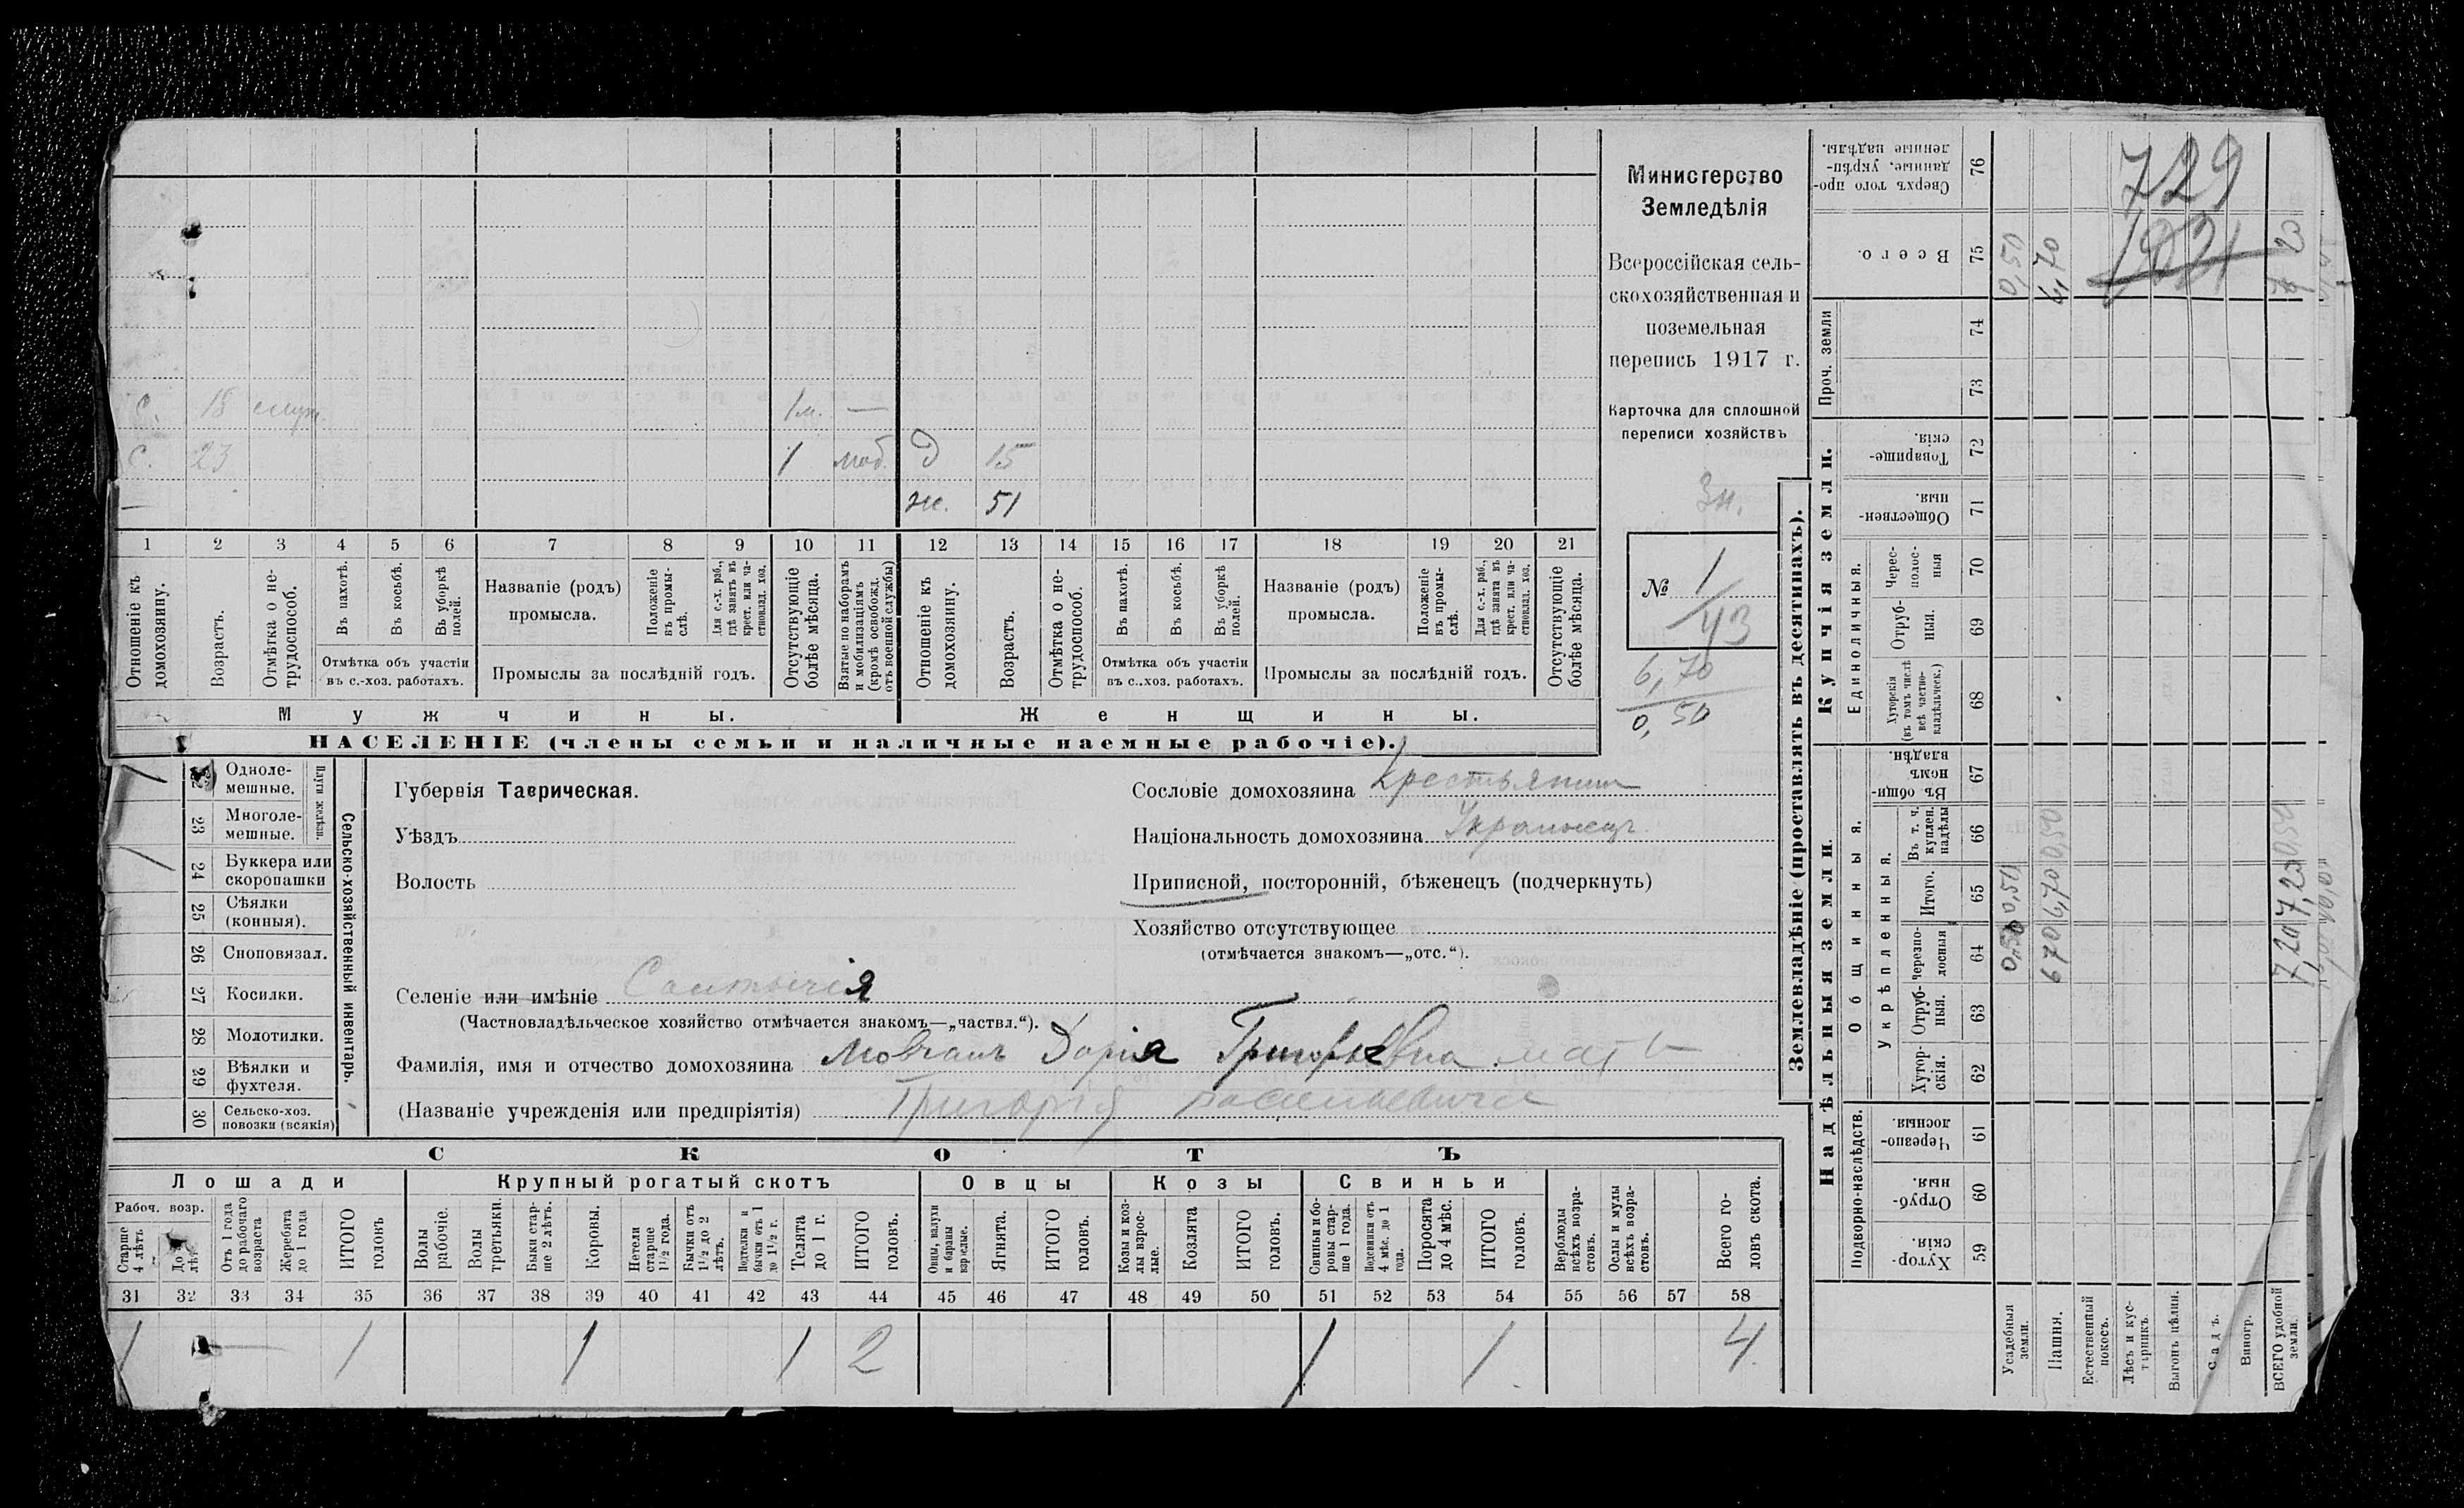 С. 18 служ. 1 м. —
С. 23 1 моб. д 15
— ж. 51
1 2 3 4 5 6 7 8 9 10 11 12 13 14 15 16 17 18 19 20 21
Отношеніе къ домохозяину.
Возрастъ.
Отмѣтка о не-трудоспособ.
Въ пахотѣ.
Въ косьбѣ.
Въ уборкѣ полей.
Отмѣтка объ участіи
въ с.-хоз. работахъ.
Названіе (родъ)
промысла.
Положеніе въ промы-слѣ.
Для с.-х. раб., гдѣ занятъ въ крест. или ча-стновлад. хоз.
Промыслы за послѣдній годъ.
Отсутствующіе болѣе мѣсяца.
Взятые по наборамъ и мобилизаціямъ (кромѣ освобожд. отъ военной службы)
Отношеніе къ домохозяину.
Возрастъ.
Отмѣтка о не-трудоспособ.
Въ пахотѣ.
Въ косьбѣ.
Въ уборкѣ полей.
Отмѣтка объ участіи
въ с..хоз. работахъ.
Названіе (родъ)
промысла.
Положеніе въ промы-слѣ.
Для с.-х. раб., гдѣ занята въ крест. или ча-стновлад. хоз.
Промыслы за послѣдній годъ.
Отсутствующіе болѣе мѣсяца.
Мужчины. Женщины.
НАСЕЛЕНІЕ (члены семьи и наличные наемные рабочіе).
Министерство
Земледѣлія
Всероссійская сель-
скохозяйственная и
поземельная
перепись 1917 г.
Карточка для сплошной
переписи хозяйствъ
Зн.
№ 1
43
6,70
0,50
1 22 Одноле-мешные.
23 Многоле-мешные.
Плуги желѣзн.
1 24 Буккера или скоропашки
25 Сѣялки (конныя).
26 Сноповязал.
27 Косилки.
28 Молотилки.
29 Вѣялки и фухтеля.
30 Сельско-хоз. повозки (всякія)
Сельско-хозяйственный инвентарь.
Губернія Таврическая.
Уѣздъ
Волость
Сословіе домохозяина крестьянин
Національность домохозяина Украинецъ
Приписной, посторонній, бѣженецъ (подчеркнуть)
Хозяйство отсутствующее
(отмѣчается знакомъ—„отс.“).
Селеніе или имѣніе
(Частновладѣльческое хозяйство отмѣчается знакомъ—„частвл.“).
Фамилія, имя и отчество домохозяина Мовчанъ Дарія Григорьевна мать
(Названіе учрежденія или предпріятія) Григорія Васильевича
СКОТЪ
Лошади Крупный рогатый скотъ Овцы Козы Свиньи
Рабоч. возр.
Старше 4 лѣтъ
До лѣт
Отъ 1 года до рабочаго возраста
Жеребята до 1 года
ИТОГО головъ
Волы рабочіе.
Волы третьяки.
Быки стар-ше 2 лѣтъ.
Коровы.
Нетели старше 1½ года.
Бычки отъ 1½ до 2 лѣтъ.
Подтелки и бычки отъ 1 до 1½ г.
Телята до 1 г.
ИТОГО головъ.
Овцы, валухи и бараны взрослые.
Ягнята.
ИТОГО головъ.
Козы и коз-лы взрос-лые.
Козлята
ИТОГО головъ.
Свиньи и бо-ровы стар-ше 1 года.
Подсвинки отъ 4 мѣс. до 1 года.
Поросята до 4 мѣс.
ИТОГО головъ.
Верблюды всѣхъ возра-стовъ.
Ослы и мулы всѣхъ возра-стовъ.
Всего го-ловъ скота.
31 32 33 34 35 36 37 38 39 40 41 42 43 44 45 46 47 48 49 50 51 52 53 54 55 56 57 58
1 — 1 1 1 2 1 1 4
Землевладѣніе (проставлять въ десятинахъ).
Надѣльныя земли. Купчія земли.
Подворно-наслѣдств.
Общинныя.
Укрѣпленныя.
Единоличныя.
Проч. земли
Хутор-скія. 59
Отруб-ныя. 60
Черезпо-лосныя. 61
Хутор-скія. 62
Отруб-ныя. 63
Черезпо-лосныя 64
Итого. 65
Въ т. ч. куплен. надѣлы 66
Въ общин-номъ владѣн. 67
Хуторскія (въ томъ числѣ всѣ частно-владѣльческ.) 68
Отруб-ныя. 69
Черес-полос-ныя 70
Обществен-ныя. 71
Товарище-скія. 72
73
74
Всего. 75
Сверхъ того про-данные, укрѣп-ленные надѣлы. 76
Усадебныя земли. 0,50 0,50 0,50
Пашня. 6 70 6,70 0,50 6,70
Естественный покосъ.
Лѣсъ и кус-тарникъ.
Выгонъ цѣлин.
Садъ.
Виногр.
ВСЕГО удобной земли. 7,20 7,20 0,50 7 20
729
1021